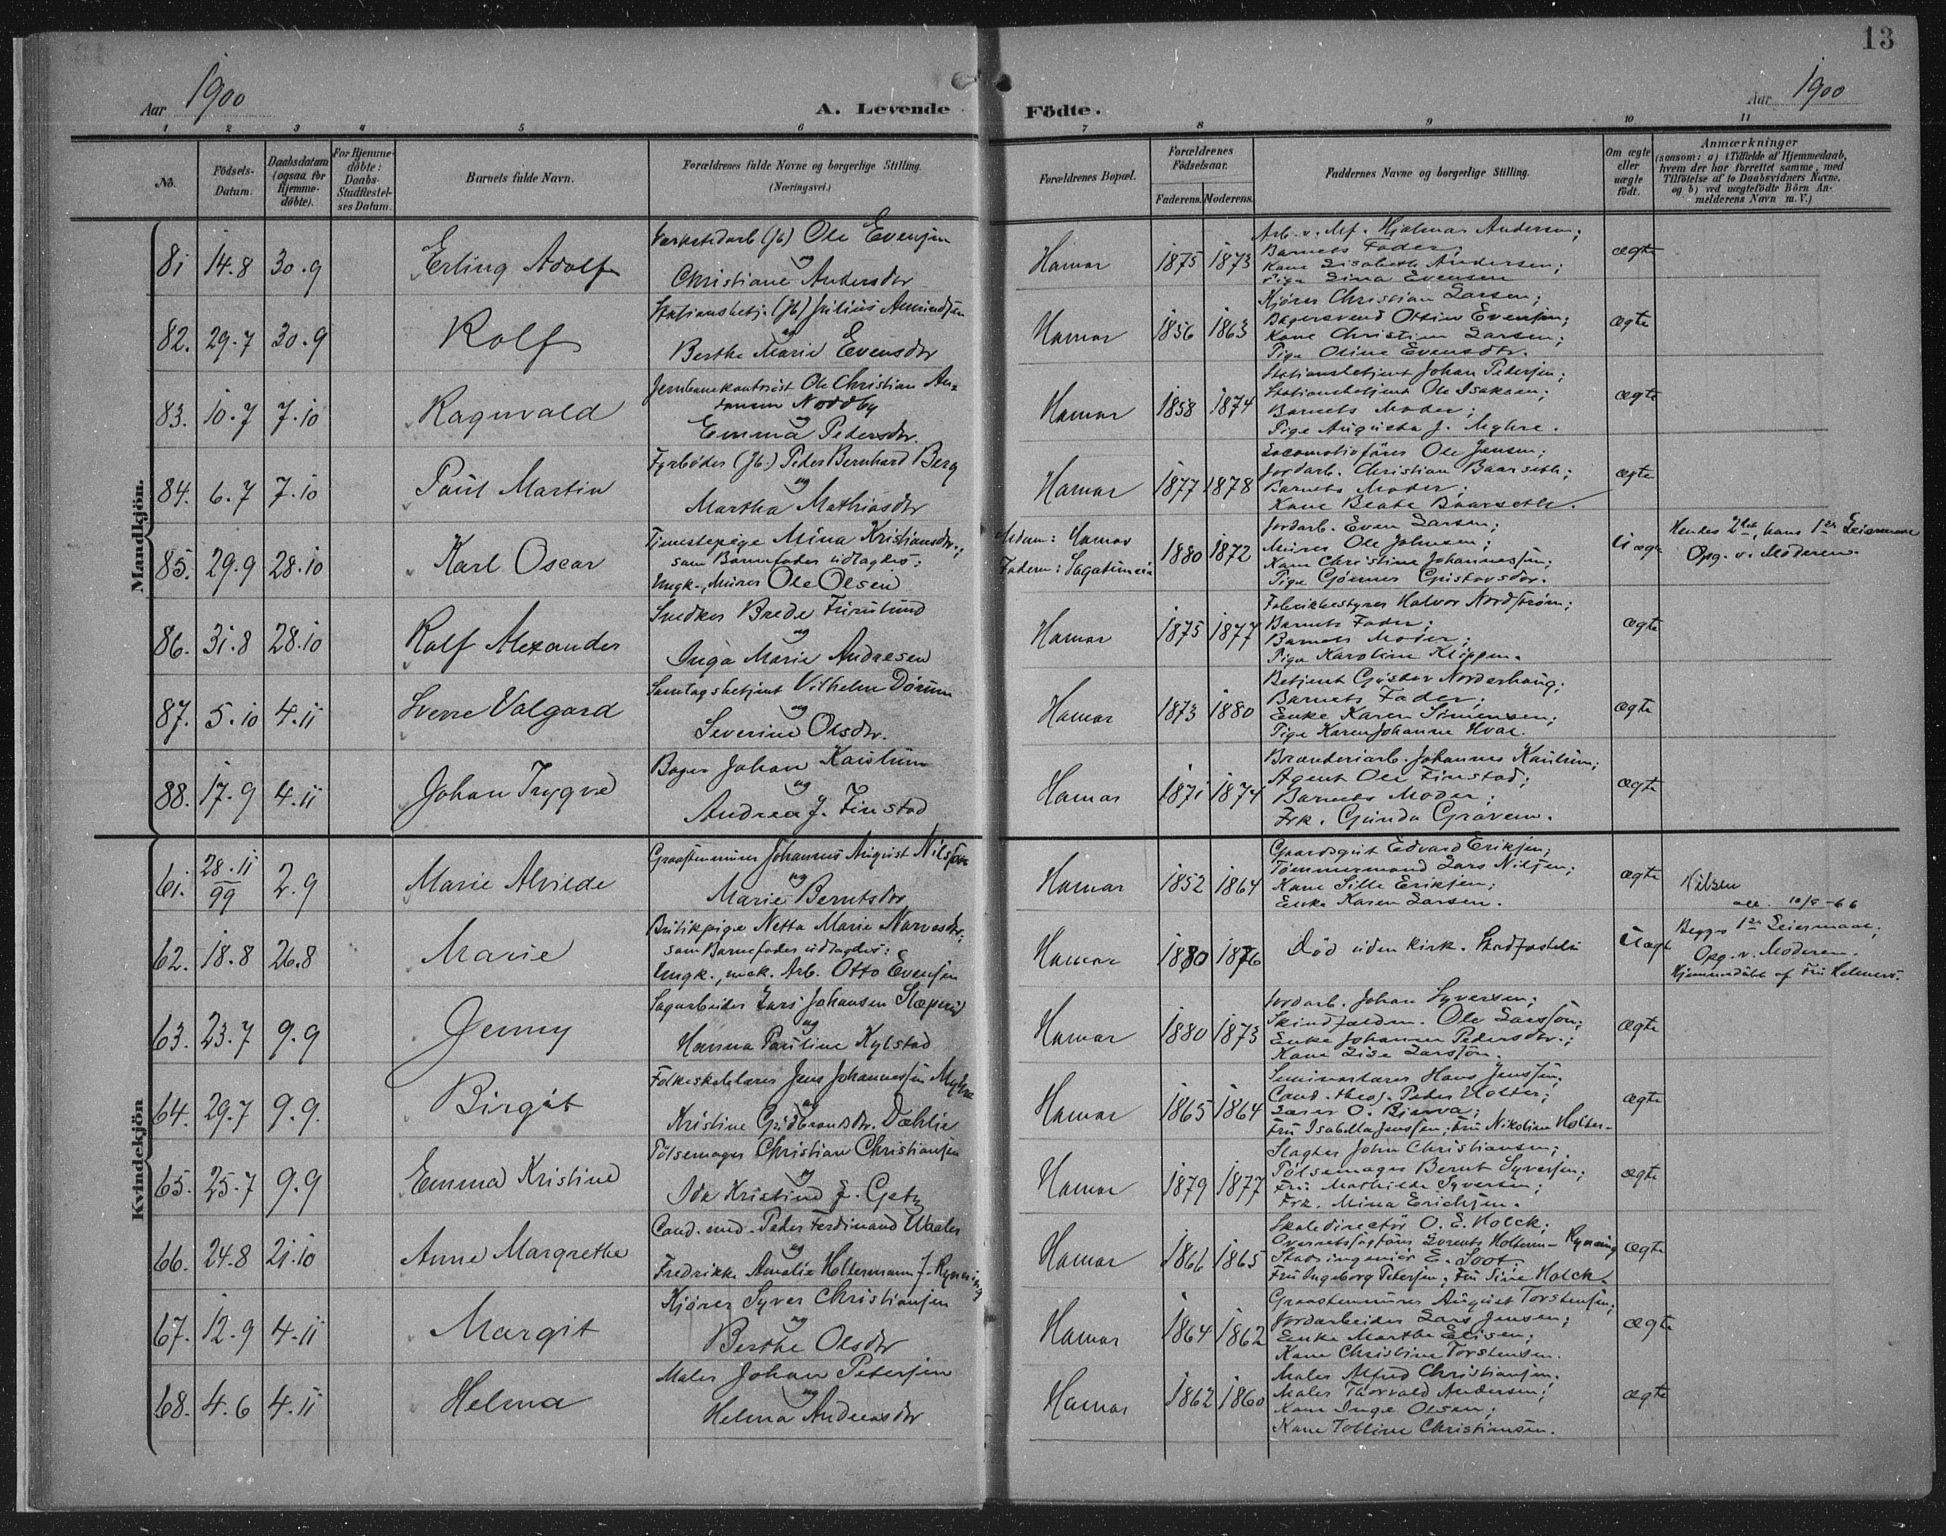 13
Aar 1900
A. Levende Födte.
Aar 1900
1 2 3 4 5 6 7 8 9 10 11
No.
Födsels-Datum.
Daabsdatum (ogsaa for Hjemme-döbte).
For Hjemme-döbte: Daabs-Stadfæstel-ses Datum.
Barnets fulde Navn.
Forældrenes fulde Navne og borgerlige Stilling. (Næringsvei.)
Forældrenes Bopæl.
Forældrenes Födselsaar.
Faderens. Moderens.
Faddernes Navne og borgerlige Stilling.
Om ægte eller uægte födt.
Anmærkninger
(saasom: a) i Tilfælde af Hjemmedaab, hvem der har forrettet samme, med Tilföielse af to Daabsvidners Navne, og b) ved uægtefödte Börn An-melderens Navn m. V.)
Mandkjön.
81 14.8 30.9 Erling Adolf
Ole Evensen
og
Christiane Andersdtr
Hamar 1875 1873
Arb. v. Hjalmar Andersen;
Barnets Fader;
Kone Lisabeth Andersen;
Pige Lina Evensen
ægte
82. 29.7 30.9 Rolf
Stationsbetj. (Jb) Julius Amundsen
og
Berthe Marie Evensdtr
Hamar 1856 1863
Kjører Christian Larsen;
Bagersvend Evensen;
Kone Christine Larsen;
Pige Oline Evensdtr.
ægte
83. 10.7 7.10 Ragnvald
Ole Christian
Noddby
og
Emma Pedersdtr.
Hamar 1858 1874
Stationsbetjent Johan Petersen;
Stationsbetjent Ole Isaksen;
Barnets Moder;
Pige Augusta J. Myhre.
ægte
84. 6.7 7.10 Paul Martin
Fyrböder (Jb.) Peder Bernhard Berg
og
Martha Mathiasdtr
Hamar 1877 1878
Locomotivförer Ole Jensen;
Jordarb. Christian Baarseth;
Barnets Moder;
Kone Beate Baarseth.
ægte
85. 29.9 28.10 Karl Oscar
Tjenestepige Mina Kristiansdtr.;
som Barnefader udlagdes:
Ungk., Murer Ole Olsen
Modern: Hamar
Fadern:
1880 1872
Jordarb. Even Larsen;
Murer Ole Johnsen;
Kone Christine Johannessen;
Pige Gustavsdtr.
Uægte
Hendes 2det, hans 1ste Leiermaal
Opg. v. Moderen.
86. 31.8 28.10 Rolf Alexander
Snedker Brede Furulund
og
Inga Marie Andresen
Hamar 1875 1877
Fabrikbestyrer Halvor Nordström;
Barnets Fader;
Barnets Moder;
Pige Karoline Klippen.
ægte
87. 5.10 4.11 Sverre Valgard
Vilhelm Dörum
og
Severine Olsdtr.
Hamar 1873 1880
Betjent Gustav Norderhaug;
Barnets Fader;
Enke Karen Simensen;
Pige Karen Johanne
ægte
88. 17.9 4.11 Johan Trygve
Bager Johan Kaulum
og
Andrea J. Finstad
Hamar 1871 1874
Brænderiarb. Johannes Kaulum;
Agent Ole Finstad;
Barnets Moder;
Frk. Gunda Graven.
ægte
Kvindekjön
61. 28.11/99 2.9 Marie Alvilde
Johannes August Nilsson
og
Marie Berntsdtr
Hamar 1852 1864
Gaardsgut Edvard Eriksen;
Tömmermand Lars Nilsen;
Kone Sille Eriksen;
Enke Karen Larsen.
ægte
Nilsen
62. 18.8 26.8 Marie
Butikpige Netta Marie
som Barnefader udlagdes:
Ungk., mek. Arb. Otto Evensen
Hamar 1880 1876
Död uden kirk. Stadfæstelse
Uægte
Begges 1ste Leiermaal;
Opg. v. Moderen.
Hjemmedöbt af Fru
63. 23.7 9.9 Jenny
Sagarbeider Lars Johansen
og
Hanna Pauline Kylstad
Hamar 1880 1873
Jordarb. Johan Syversen;
Ole Larssön;
Enke Johanne Pedersdtr.;
Kone Lise Larssön.
ægte
64. 29.7 9.9. Birgit
Jens Johannessen
og
Kristine Gudbrandsdtr. Dæhlie
Hamar 1865 1864
Seminarlærer Hans Jenssen;
Cand. theol. Peder Holter;
Lærer O. Bjerva;
Fru Isabella Jenssen; Fru Nikoline Holter.
ægte
65. 25.7 9.9 Emma Kristine
Pölsemager Christian Christiansen
og
Ida Kristine J. Getz
Hamar 1879 1877
Slagter John Christiansen;
Pölsemager Bernt Syversen;
Fru Mathilde Syversen;
Frk. Mina Erichsen.
ægte
66. 24.8 21.10 Anne Margrethe
Cand. med. Peder Ferdinand Waaler
og
Fredrikke Amalie Holtermann J. Rynning
Hamar 1866 1865
Skoledirectör O. E. Holck;
Overretssagförer Lorents Holterm. Rynning
Stadsingeniör E. Soot;
Fru Ingeborg Petersen; Fru Sine Holck.
ægte
67. 12.9 4.11 Margit
Kjører Syver Christiansen
og
Berthe Olsdtr
Hamar 1864 1862
August Torstensen;
Jordarbeider Lars Jensen;
Enke Marthe Elisen;
Kone Christine Torstensen.
ægte
68. 4.6 4.11 Helma
Maler Johan Petersen
og
Helma Andreasdtr
Hamar 1862 1860
Maler Alfred Christiansen.
Maler Thorvald Andersen;
Kone Inge Olsen;
Kone Tolline Christiansen.
ægte